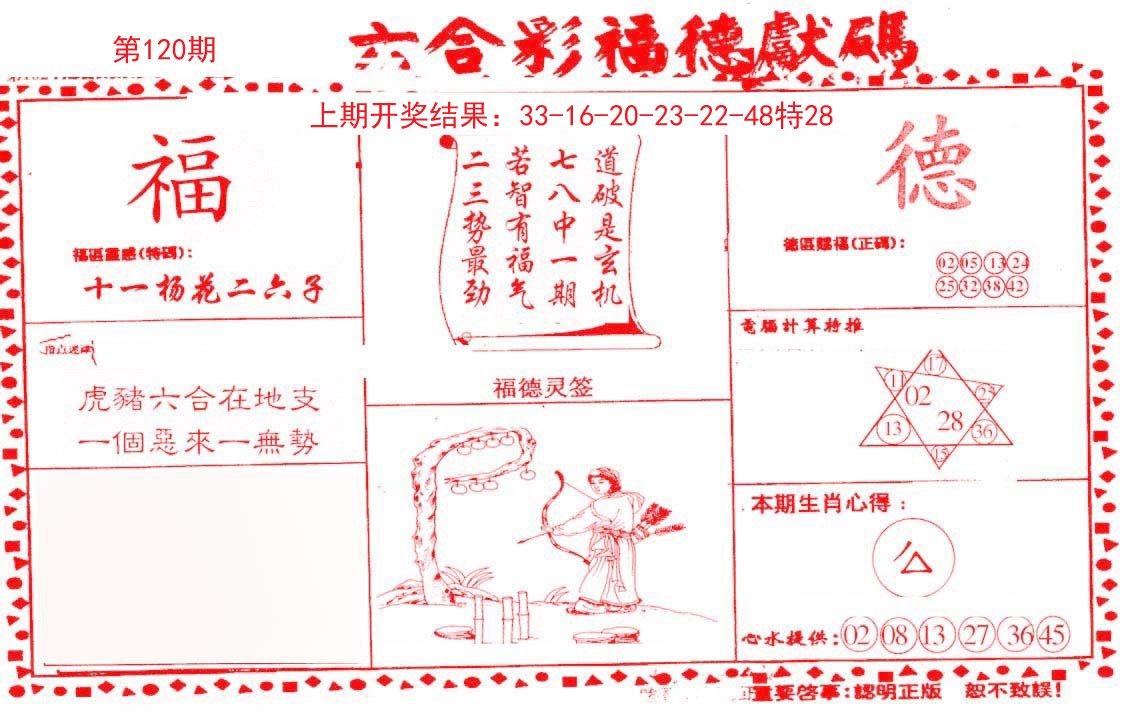 第120期
六合彩福德獻碼
上期开奖结果：33-16-20-23-22-48特28
福
福區靈感(特碼)：
十一杨花二六子
虎豬六合在地支
一個惡來一無勢
道破是玄机
七八中一期
若智有福气
二三势最劲
福德灵签
德
德區賜福(正碼)：
02 05 13 24
25 32 38 42
電腦計算特推
17
11 02 23
13 28 36
15
本期生肖心得：
心水提供：02 08 13 27 36 45
重要啓事：認明正版 恕不致誤！